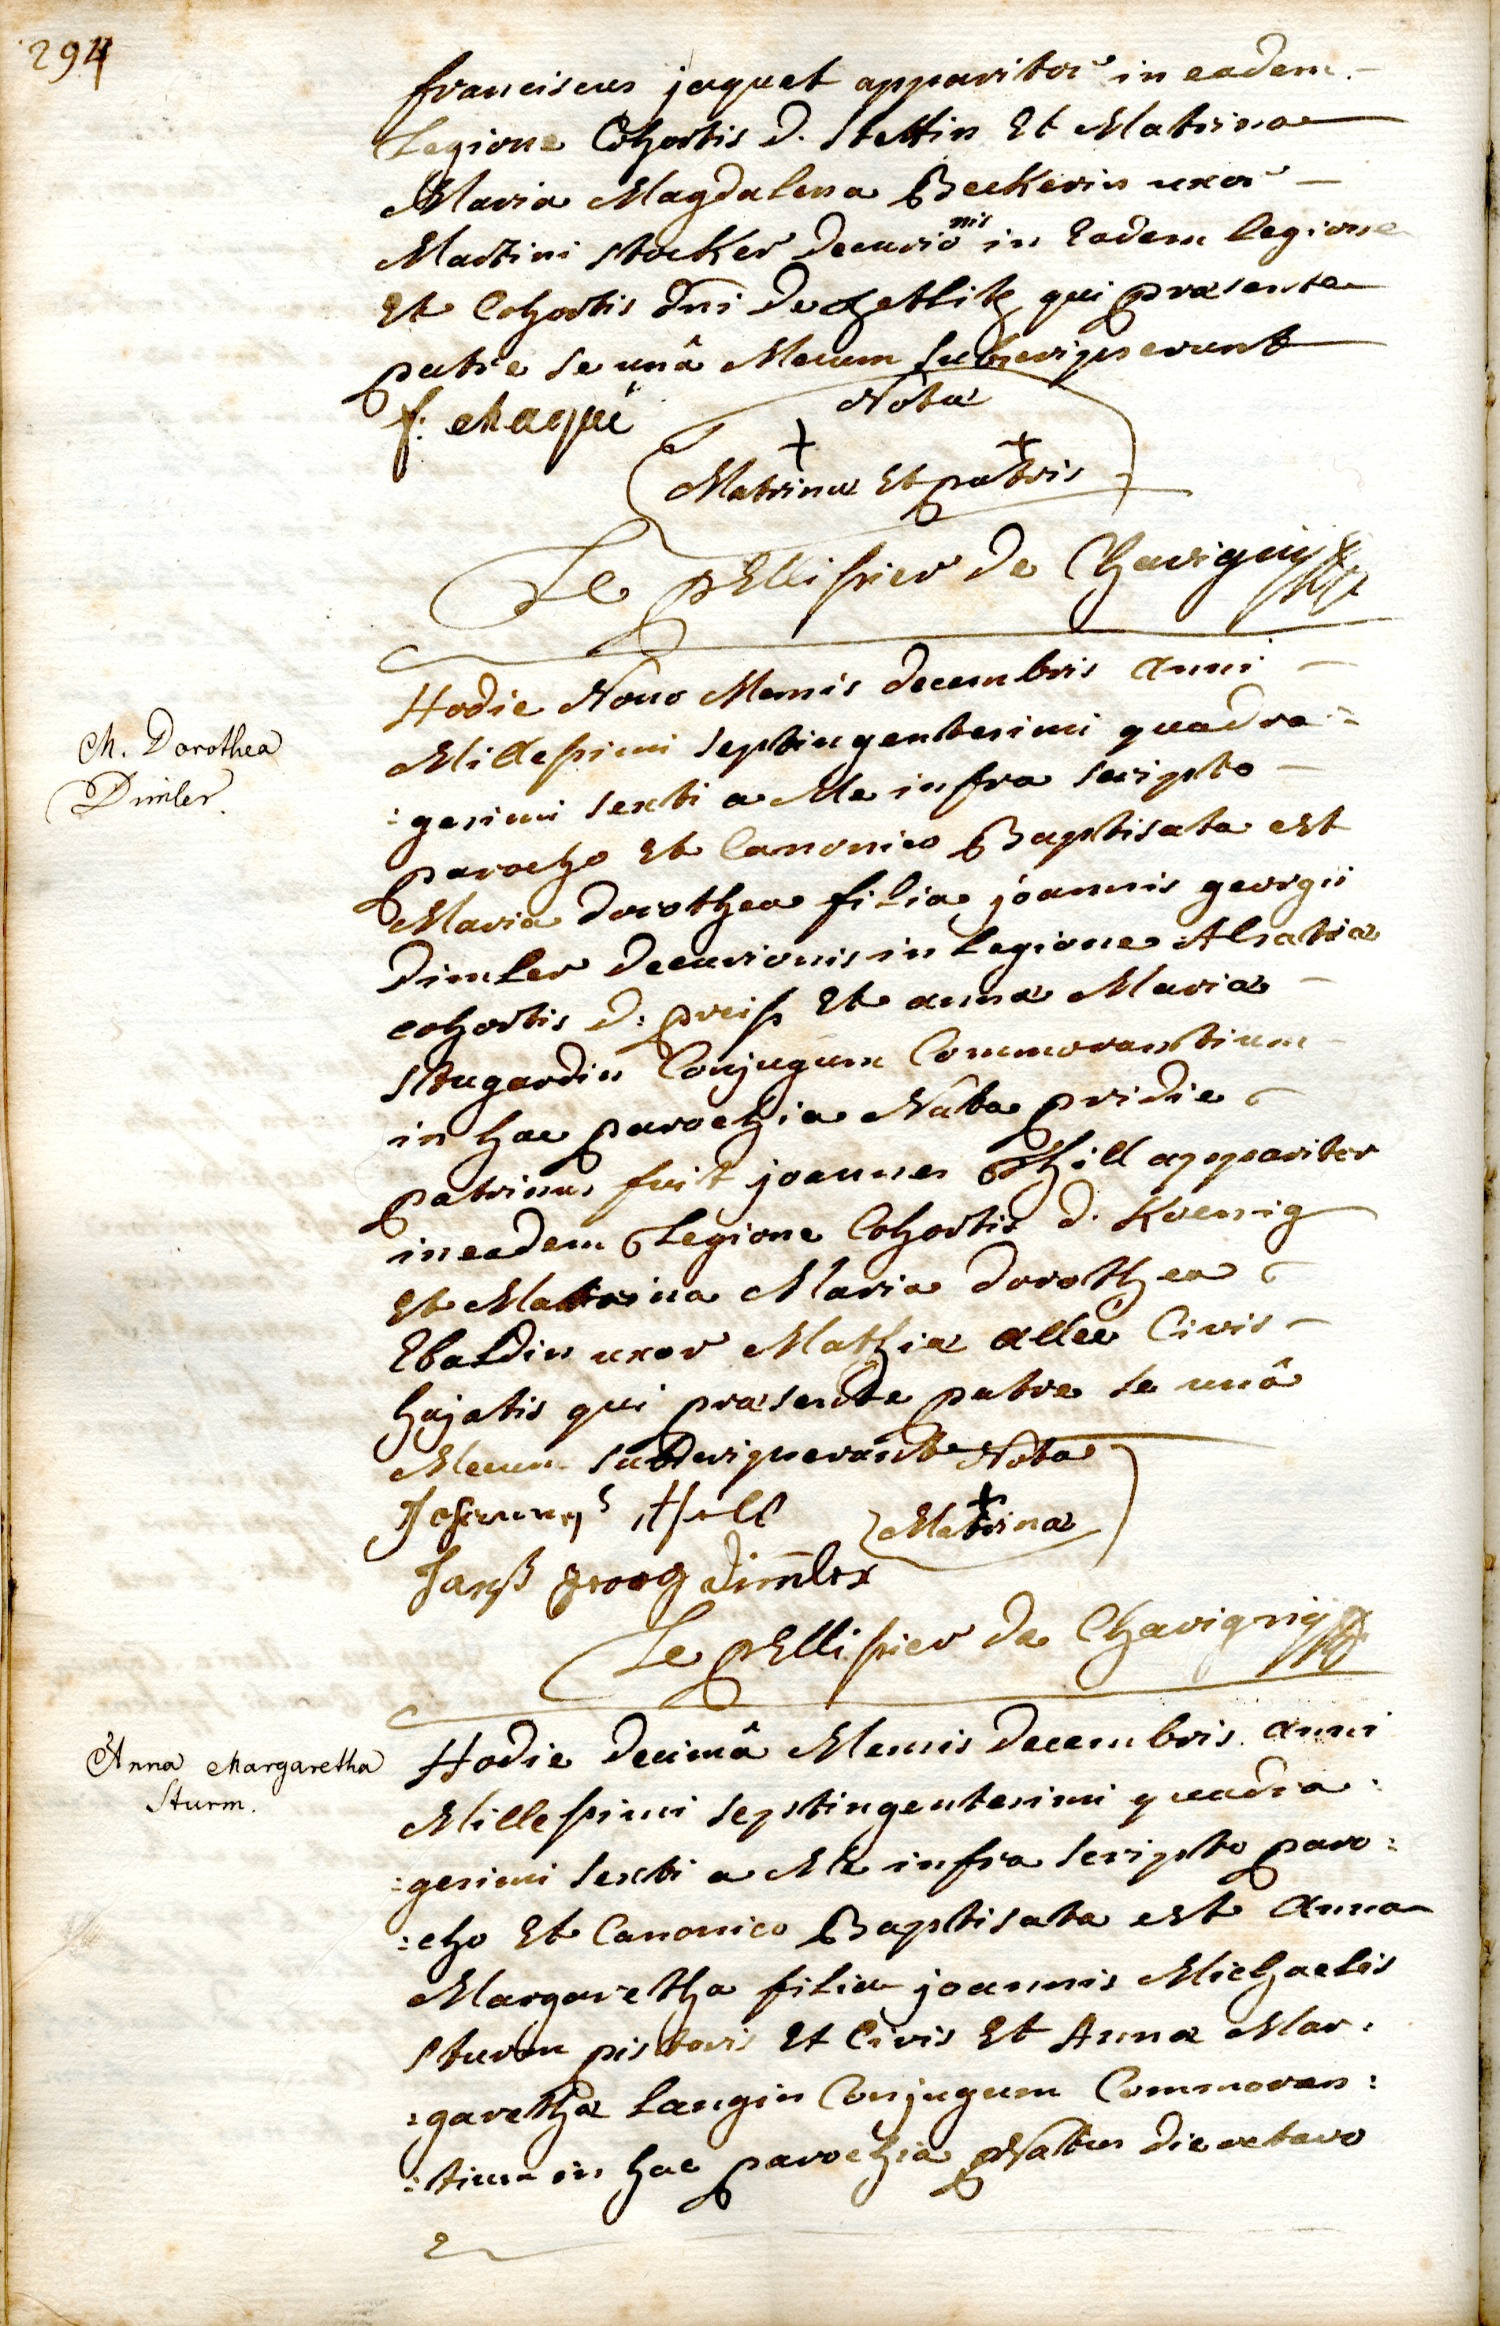 294
franciscus jaquet apparitor in eadem
Legione Cohortis d. Stettin Et Matrina
Maria Magdalena Beckerin uxor
Martini stocker decurionis in Eadem legione
Et Cohortis dni de Zetlitz qui præsente
patre se unâ Mecum subscripserunt
f:
Nota
+ +
Matrinæ Et patris
Le pEllissier de Chavigny
M. Dorothea
Dimler.
Hodie Nono Mensis decembris anni
Millessimi septingentesimi quadra=
:gesimi sexti a Me infra scripto
parocho Et Canonico Baptisata est
Maria dorothea filia joannis georgii
Dimler decurionis in legione Alsatiæ
cohortis d: preiss Et annæ Mariæ
stugardin Conjugum Commorantium
in hac parochia Nata pridie
patrinus fuit joannes Thill appariter
in eadem Legione Cohortis d. Koenig
Et Matrina Maria dorothea
Ebaldin uxor Mathiæ allee Civis
hujatis qui præsente patre se unâ
Mecum subscripserunt Nota
+
Matrinæ
Johannes
Hanß georg dimler
Le pEllissier de Chavigny
Anna Margaretha
Sturm.
Hodie decimâ Mensis decembris anni
Millessimi septingentesimi quadra:
:gesimi sexti a Me infra scripto paro:
:cho Et Canonico Baptisata est Anna
Margaretha filia joannis Michaelis
sturm pistoris Et Civis Et Annæ Mar:
:garethæ Langin Conjugum Commoran:
:tium in hac parochia Natus die octavo